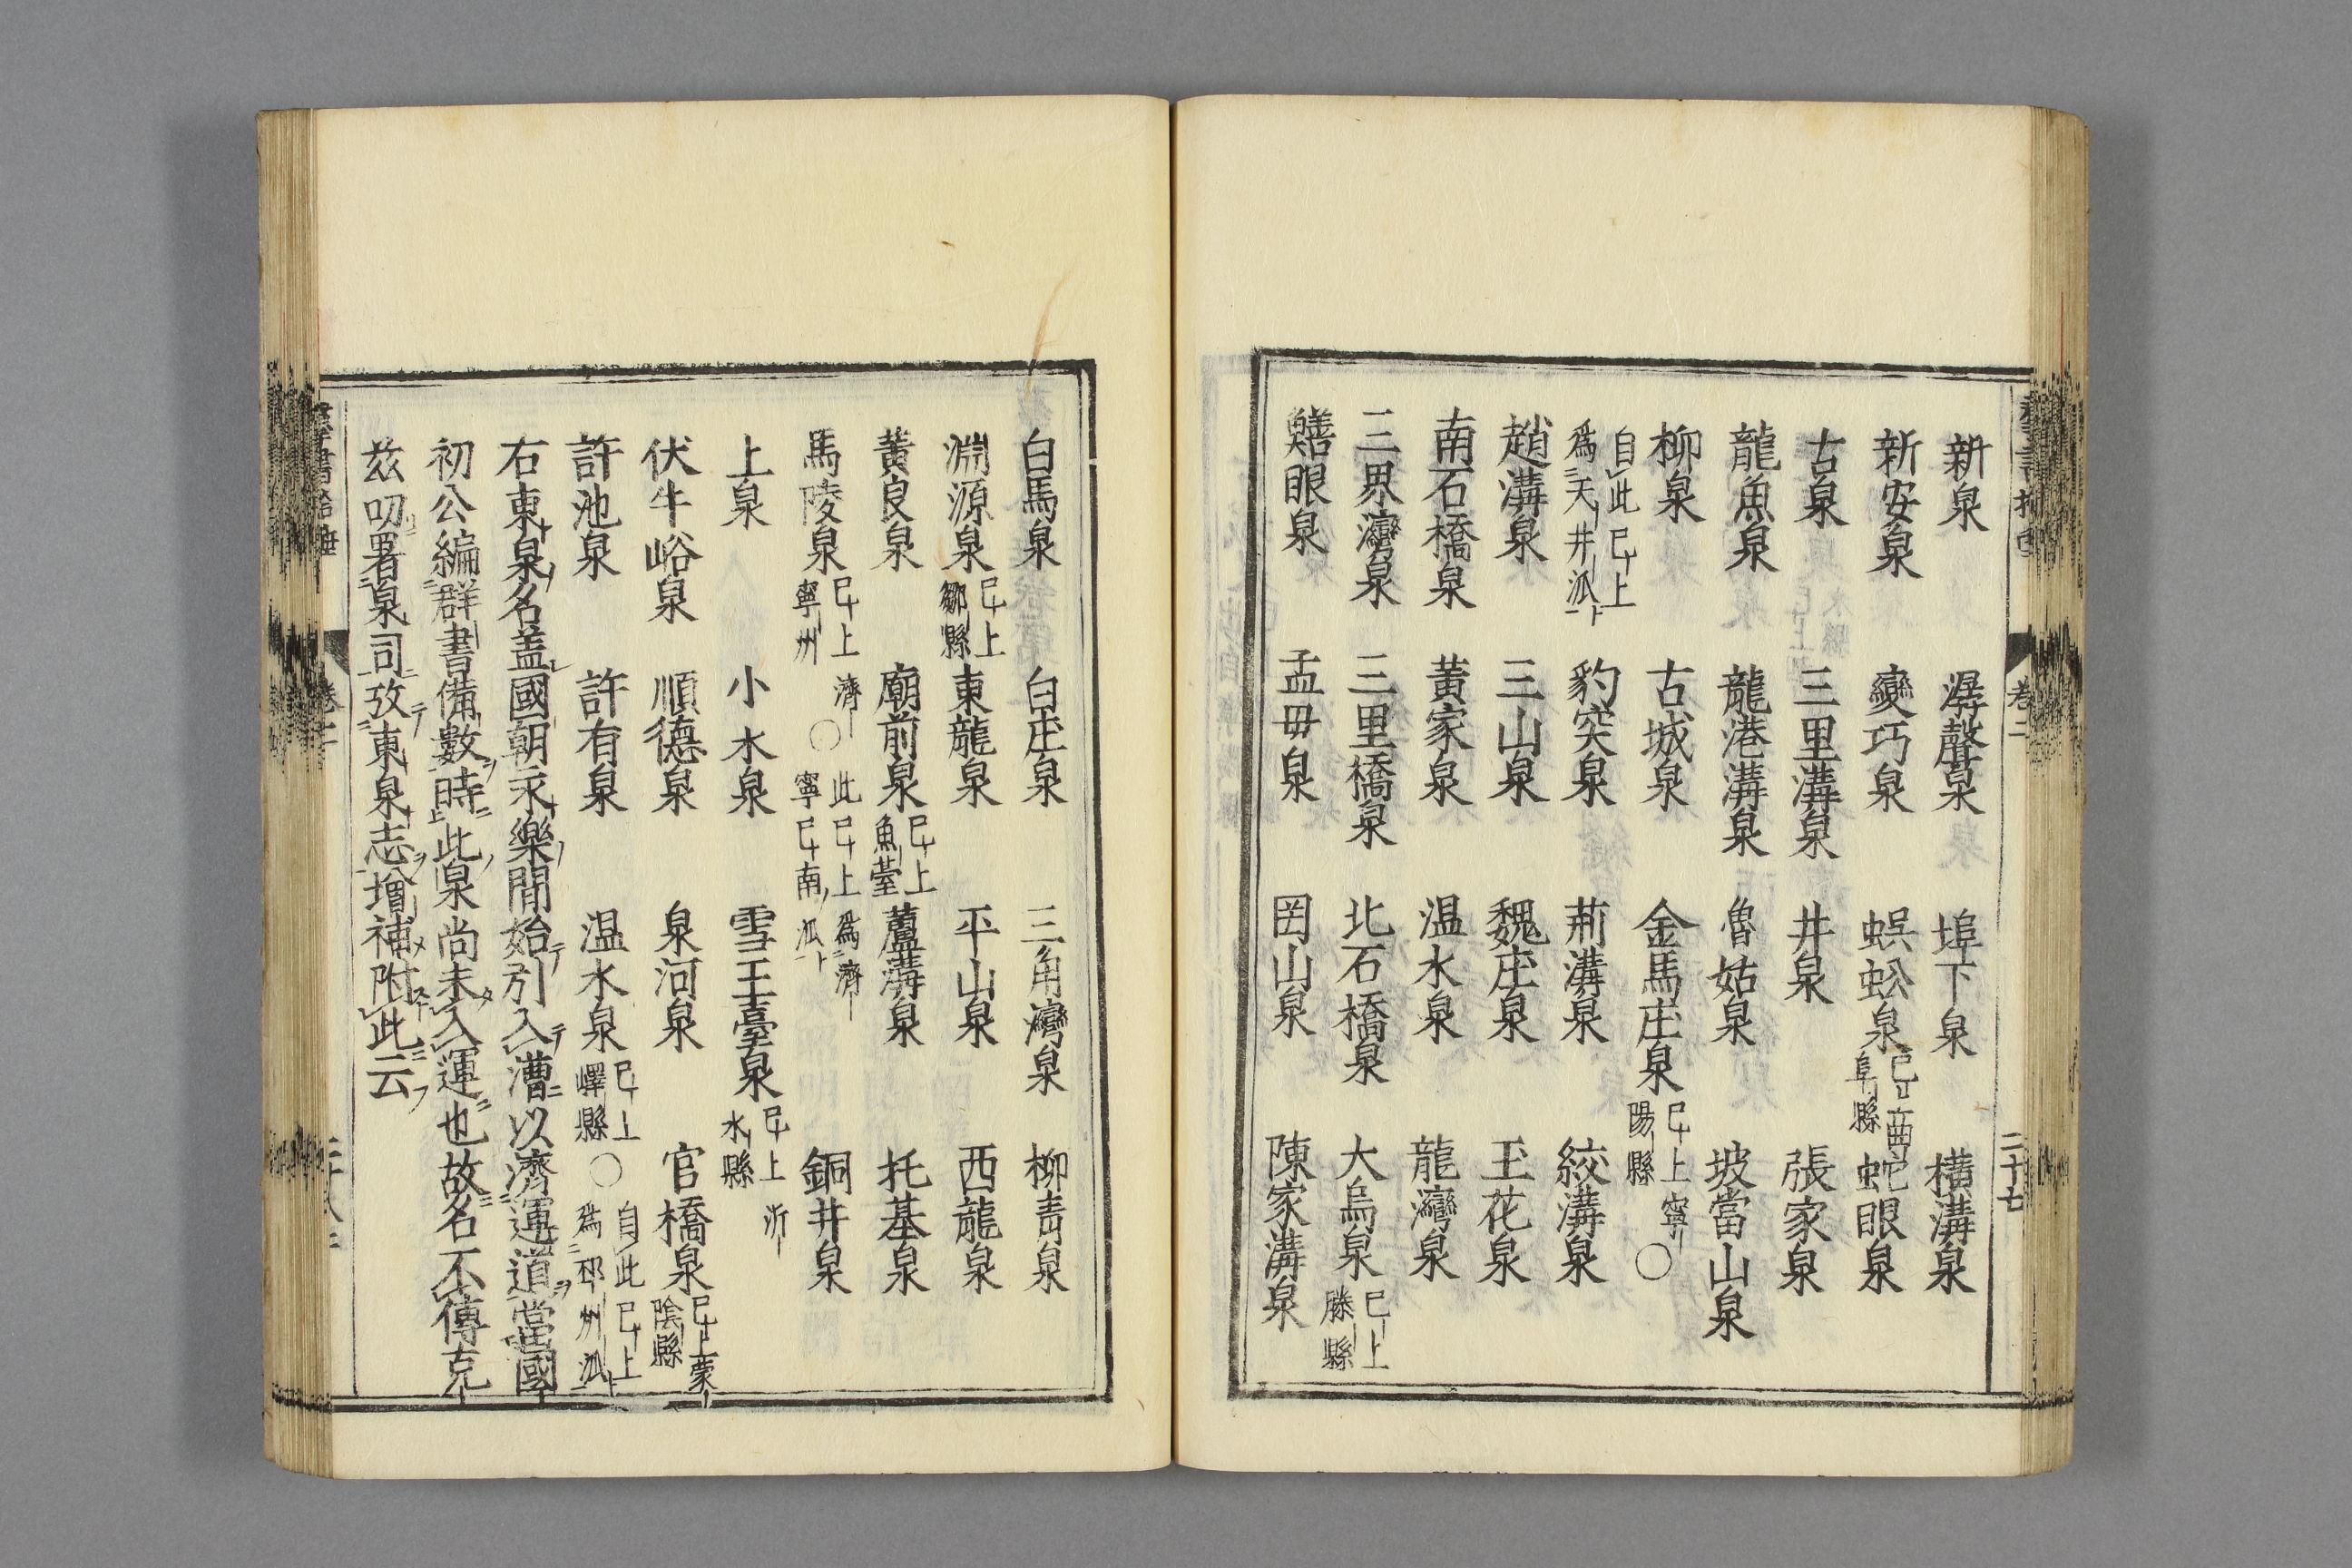 新泉 潺聲泉 埠下泉 横溝泉
新安泉 變巧泉 蜈蚣泉 已上曲阜縣 蛇眼泉
古泉 三里溝泉 井泉 張家泉
龍魚泉 龍港溝泉 魯姑泉 坡當山泉
柳泉 古城泉 金馬庄泉 已上寧陽縣 〇
自此已上爲天井派 豹突泉 荊溝泉 絞溝泉
趙溝泉 三山泉 魏庄泉 玉花泉
南石橋泉 黃家泉 温水泉 龍灣泉
三界灣泉 三里橋泉 北石橋泉 大烏泉 已上滕縣
鱔眼泉 孟毋泉 罔山泉 陳家溝泉
卷二
二十七
白馬泉 白庄泉 三角灣泉 柳青泉
淵源泉 已上鄒縣 東龍泉 平山泉 西龍泉
黃良泉 廟前泉 已上魚臺 蘆溝泉 托基泉
馬陵泉 已上濟寧州 〇 此已上爲濟寧已南派 銅井泉
上泉 小水泉 雪王臺泉 已上沂水縣
伏牛峪泉 順德泉 泉河泉 官橋泉 已上蒙陰縣
許池泉 許有泉 温水泉 已上嶧縣 〇 自此已上爲邳州派
右東泉名盖國朝永樂間始引入漕以濟運道當國
初公編群書備數時此泉尚未入運也故名不傳克
茲叨署泉司攷東泉志增補附此云